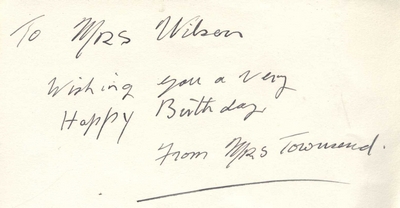 To Mrs Wilson
Wishing you a very
Happy Birthday
From Mrs Townsend.